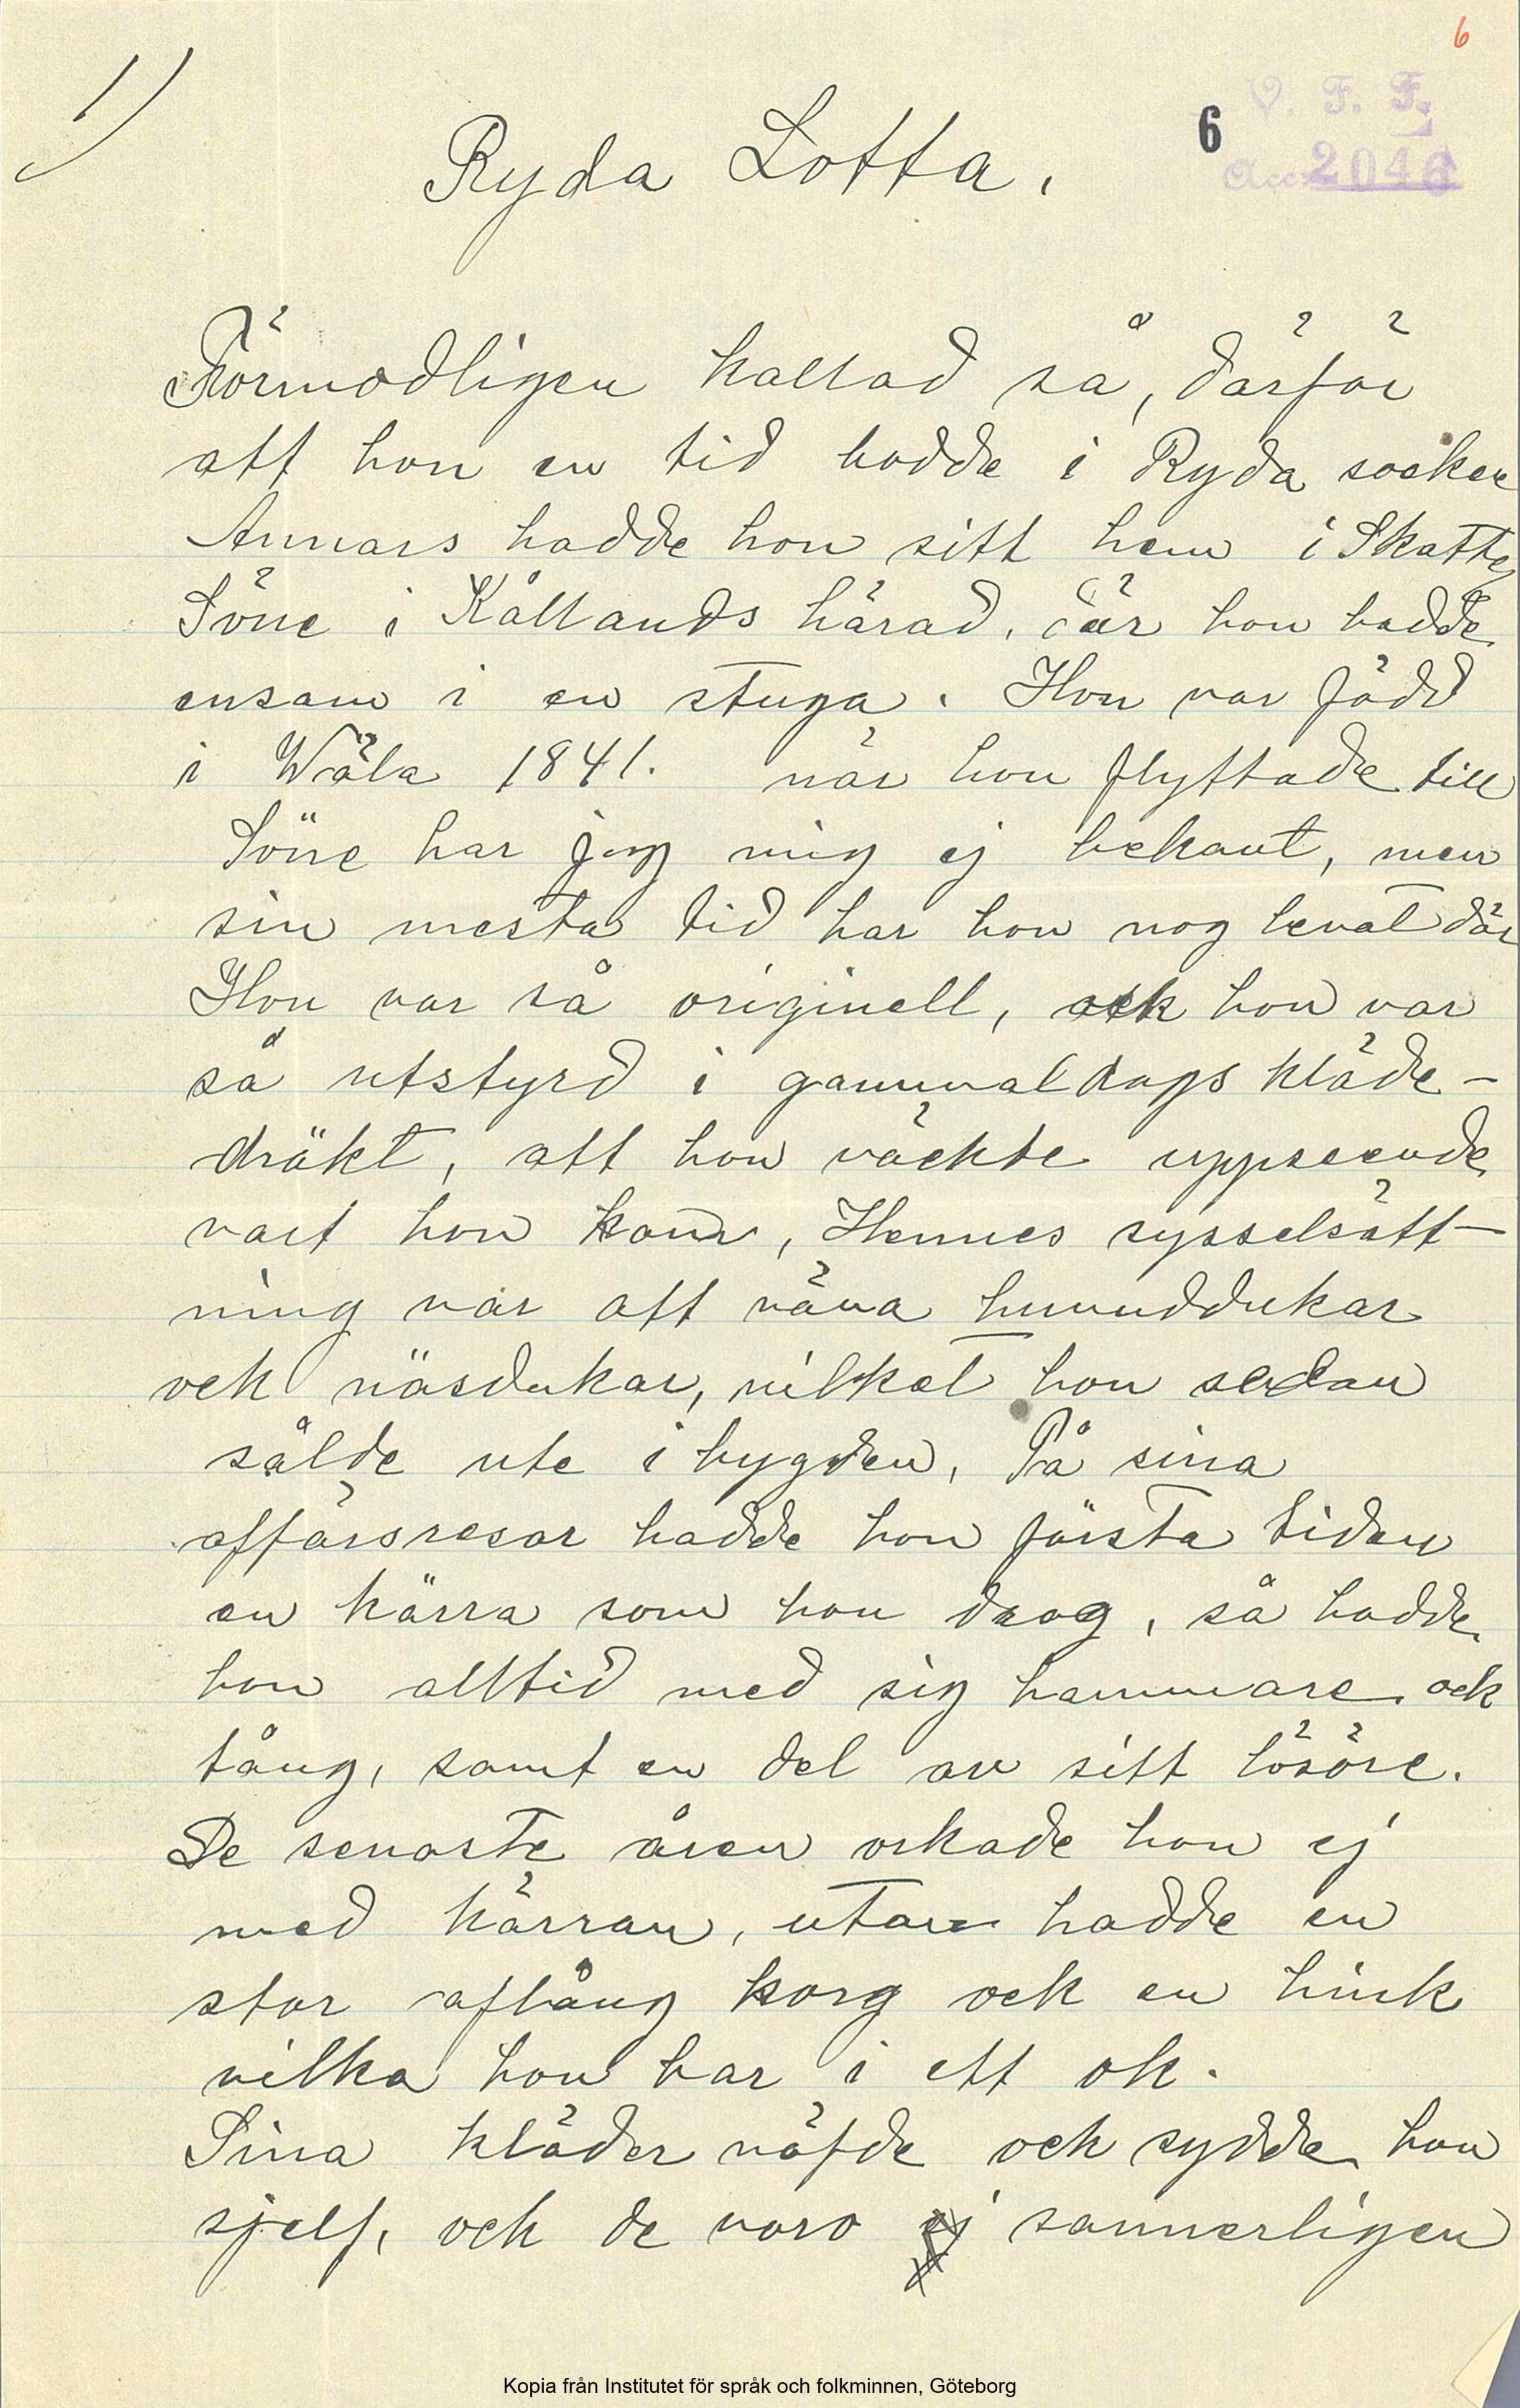 6
1)
6
V. F. F.
Acc. 2046
Ryda Lotta.
Förmodligen kallad så, därför
att hon en tid bodde i Ryda socken
Annars hadde hon sitt hem i Skatte
Söne i Kållands härad, där hon bodde
ensam i en stuga. Hon var född
i Wäla 1841. när hon flyttade till
Söne har jag mig ej bekant, men
sin mesta tid har hon nog levat där
Hon var så originell, ock hon var
så utstyrd i gammaldags kläde-
dräkt, att hon väckte uppseende
vart hon kom, Hennes sysselsätt-
ning var att väva huvuddukar
och näsdukar, vilket hon sedan
sålde ute i bygden, På sina
affärsresor hadde hon första tiden
en kärra som hon drog, så hadde
hon alltid med sig hammare ock
tång, samt en del av sitt lösöre.
De senaste åren orkade hon ej
med kärran, utan hadde en
stor aflång korg och en hink
vilka hon bar i ett ok.
Sina kläder väfde och sydde hon
sjelf, och de voro ej sannerligen
Kopia från Institutet för språk och folkminnen, Göteborg